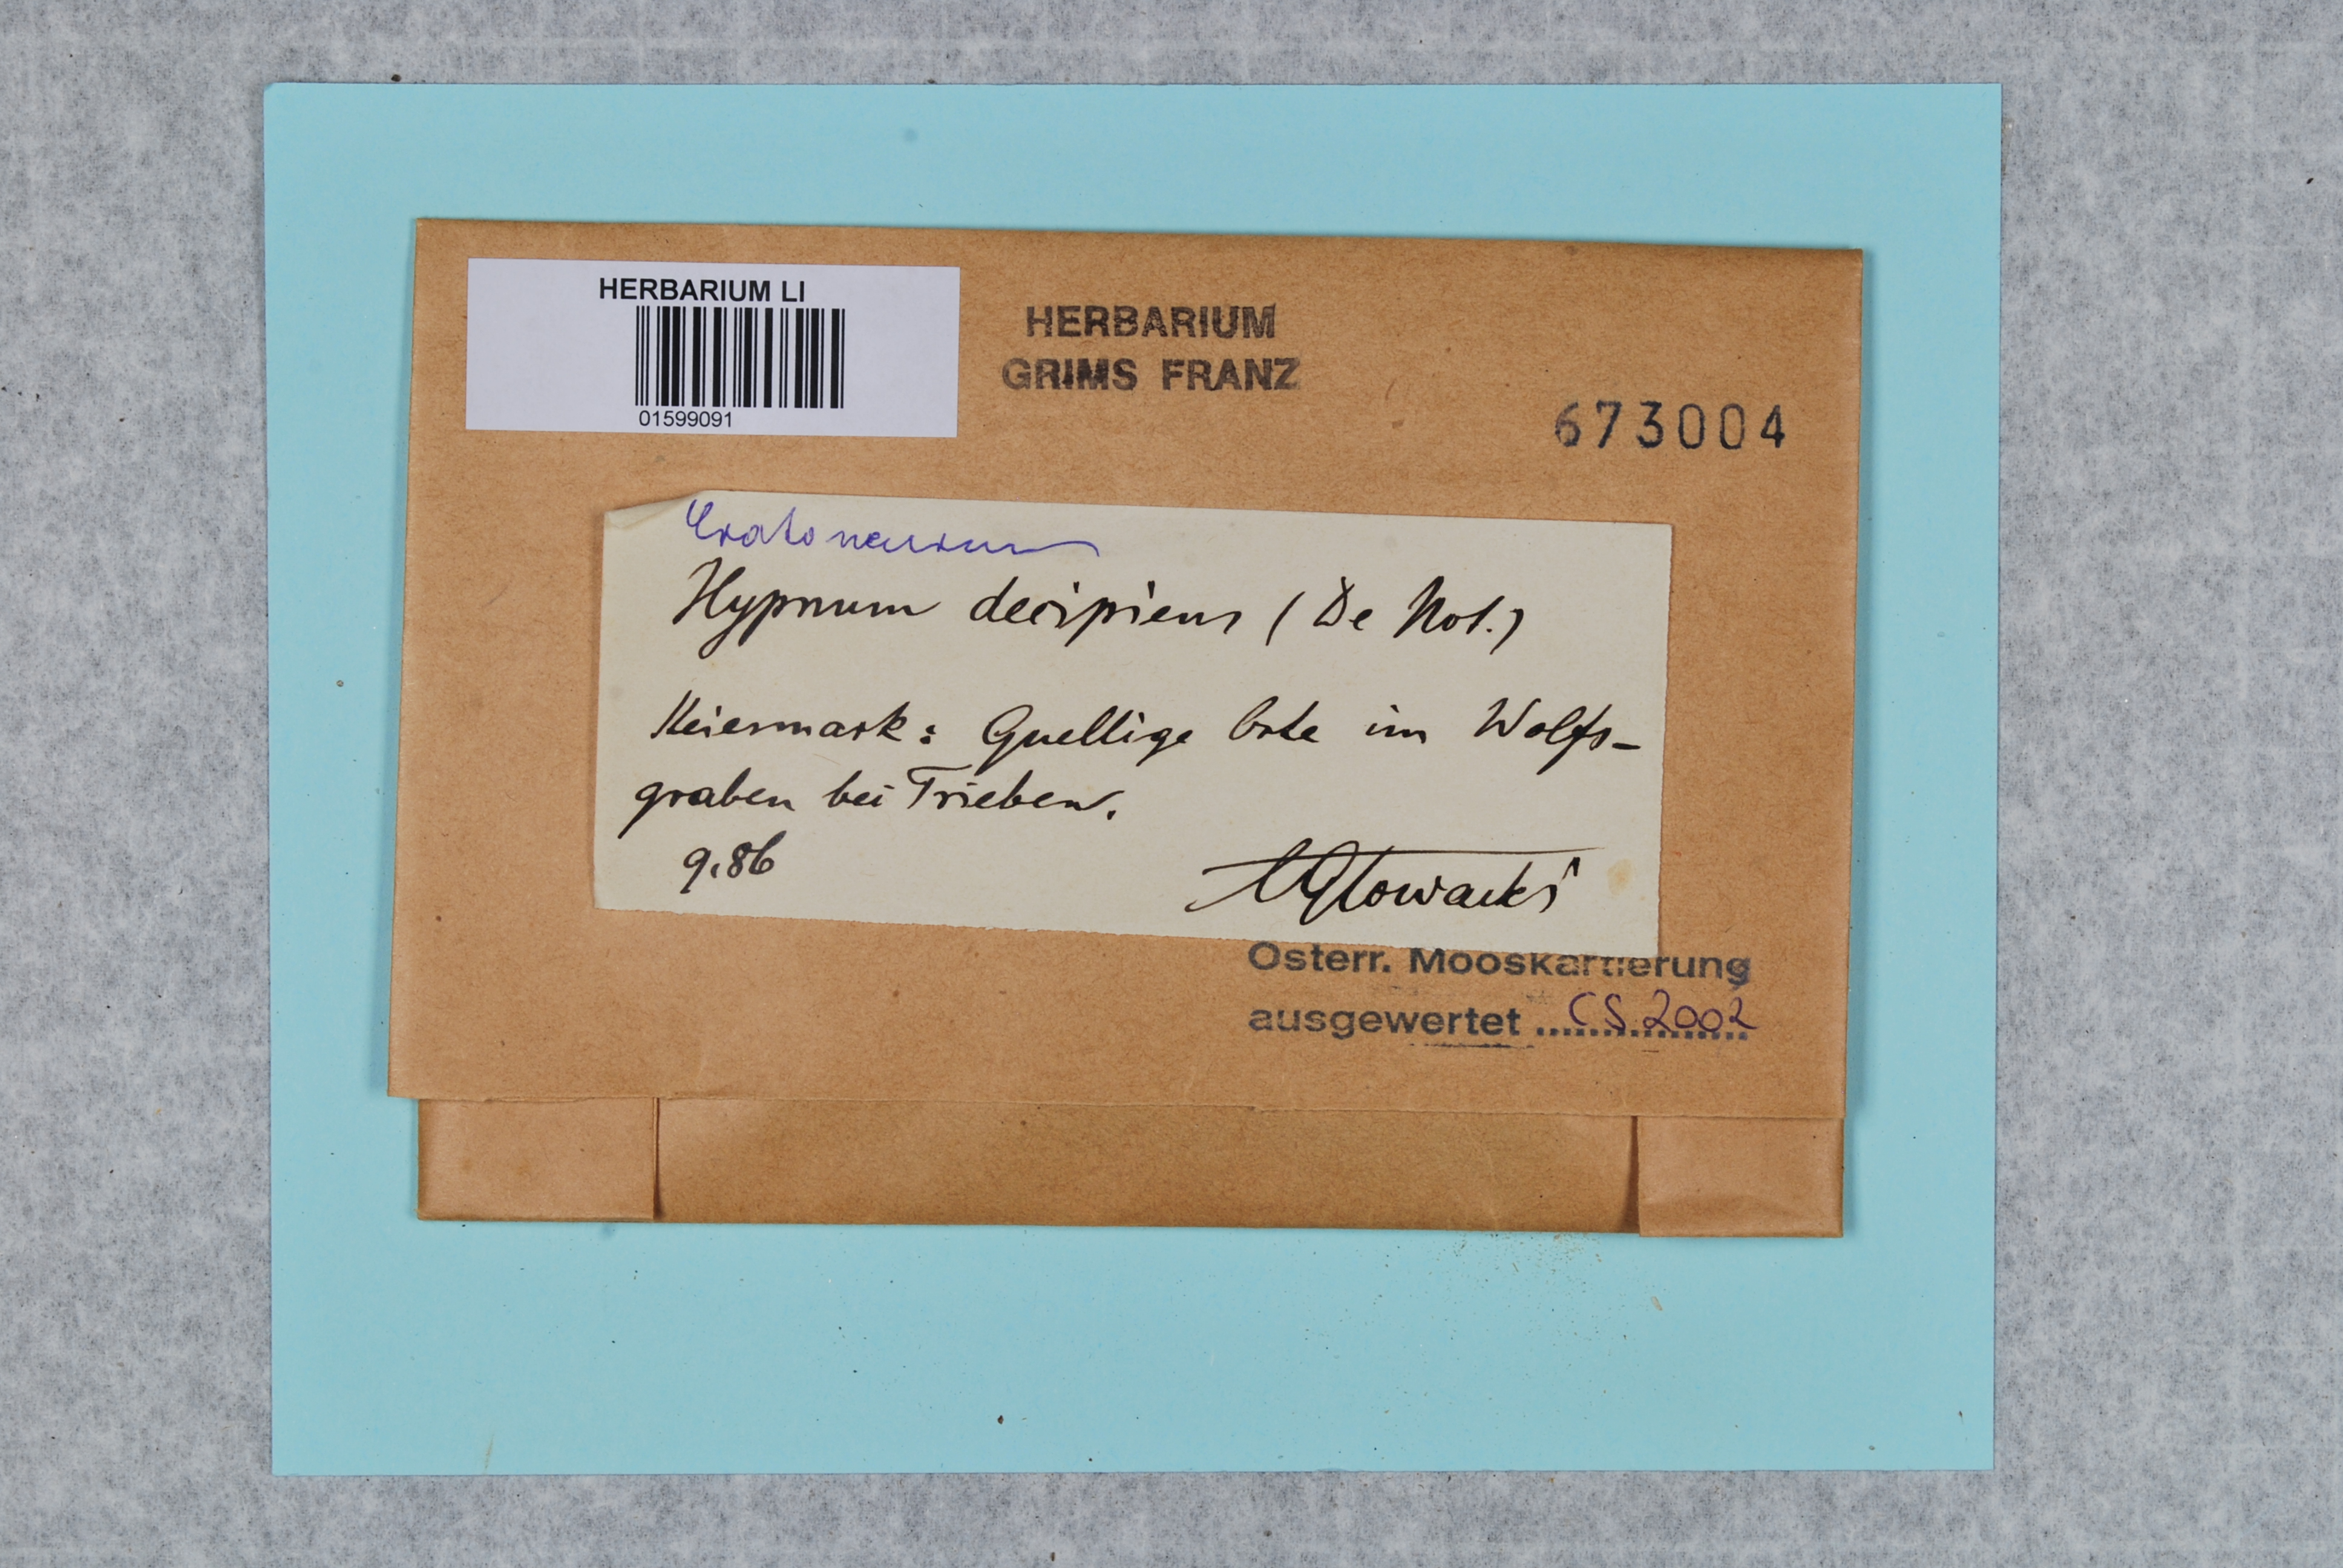 HERBARIUM LI
01599091
HERBARIUM
GRIMS FRANZ
673004
Cratoneurum
Hypnum decipiens (De Not.)
Steiermark: Quellige Orte im Wolfs-
graben bei Trieben.
9.86
Glowacki
Österr. Mooskartierung
ausgewertet ... CS 2002